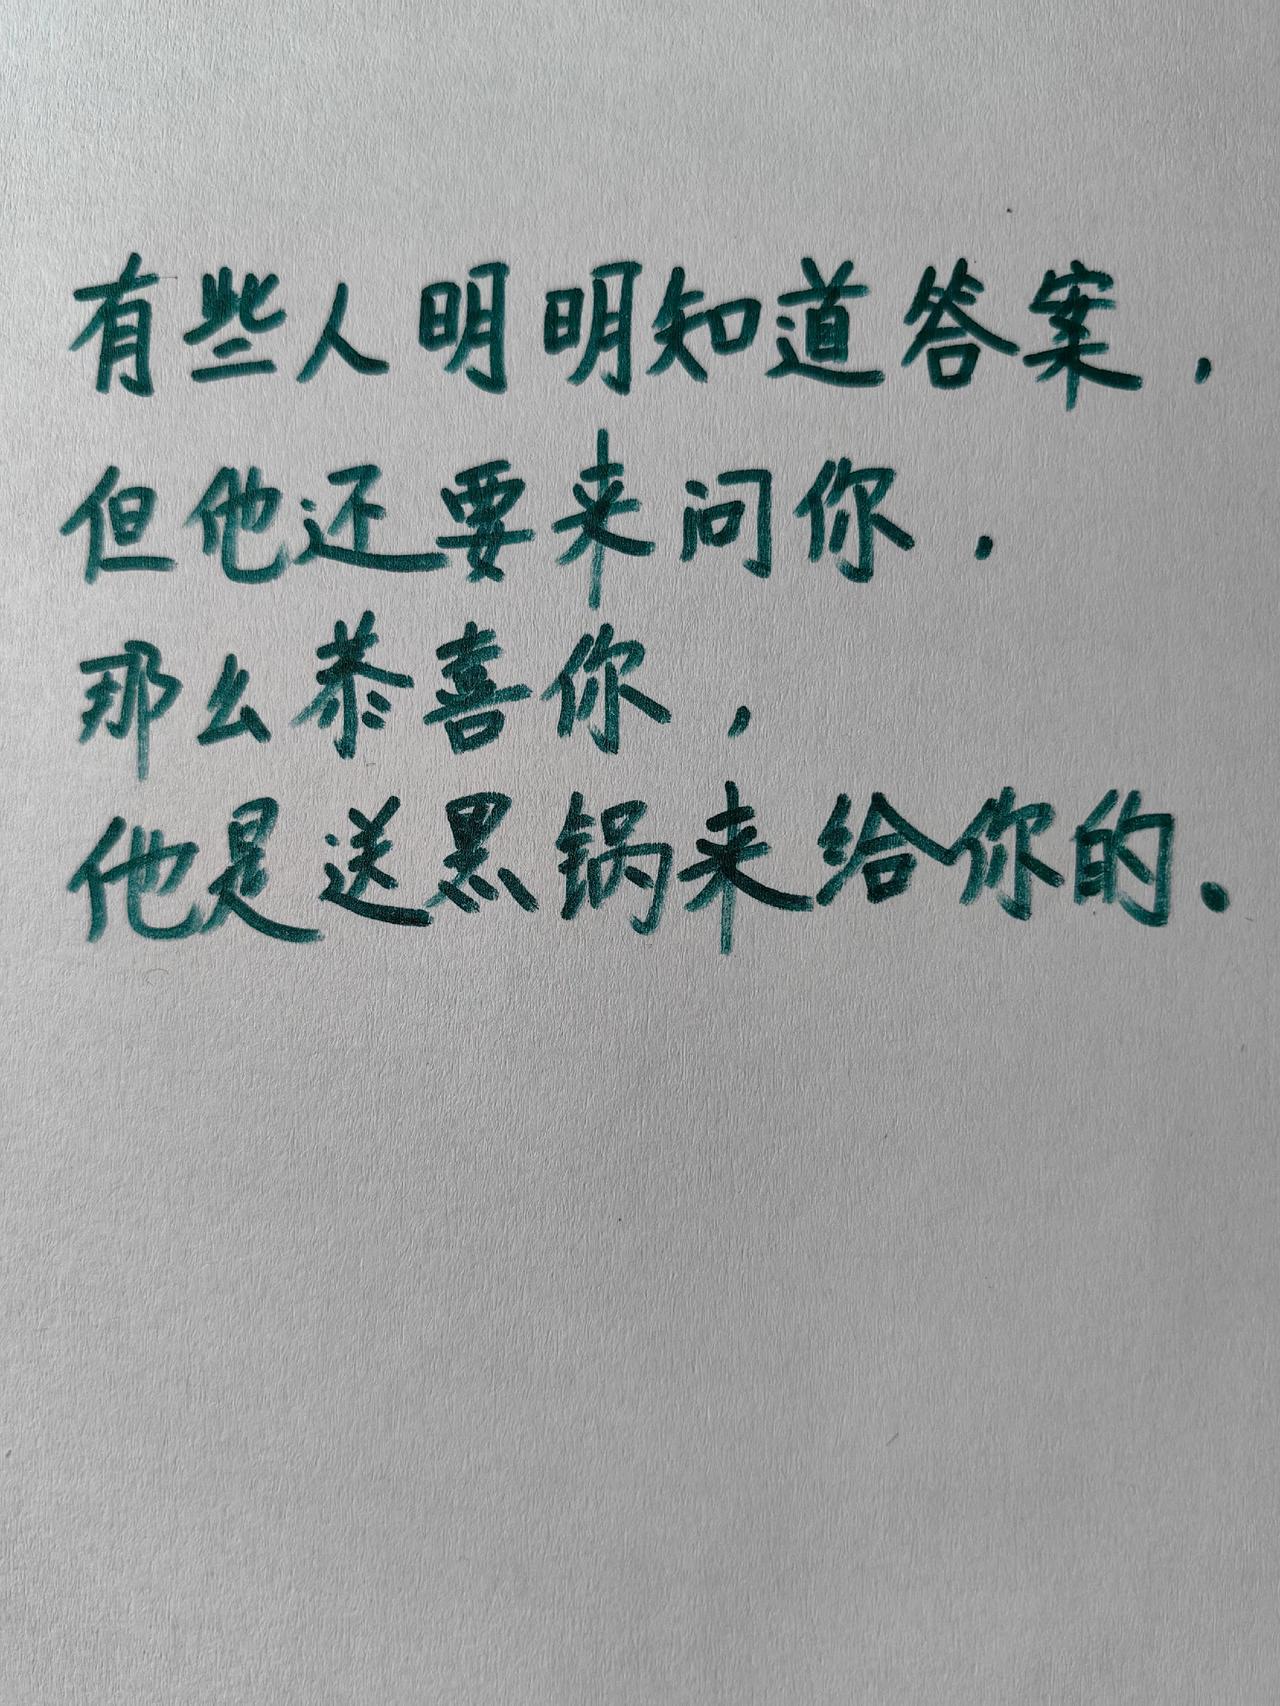 有些人明明知道答案，
但他还要来问你，
那么恭喜你，
他是送黑锅来给你的。